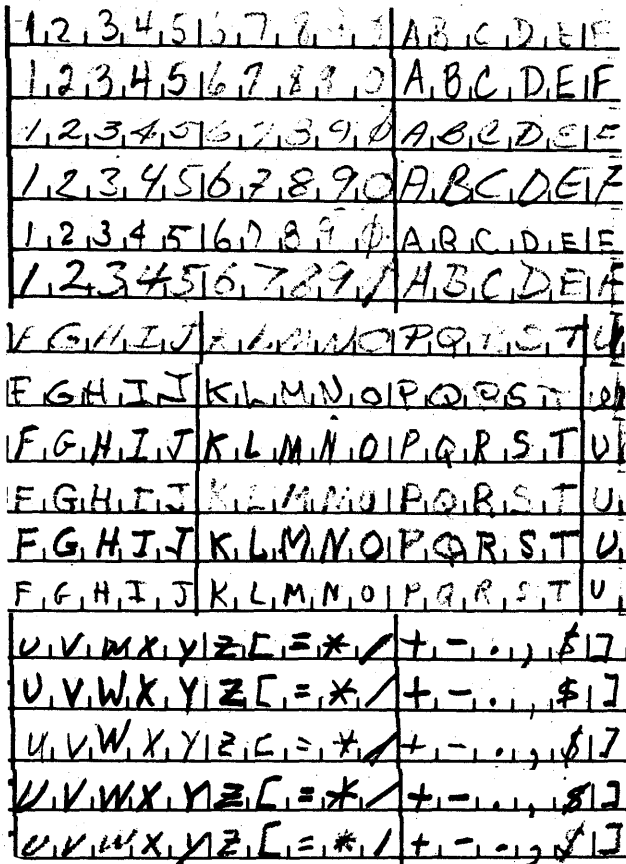 1 2 3 4 5 6 7 8 9 0 A B C D E F
1 2 3 4 5 6 7 8 9 0 A B C D E F
1 2 3 4 5 6 7 8 9 0 A B C D E F
1 2 3 4 5 6 7 8 9 0 A B C D E F
1 2 3 4 5 6 7 8 9 0 A B C D E E
1 2 3 4 5 6 7 8 9 A B C D E F
F G H I J K L M N O P Q R S T U
F G H I J K L M N O P Q R S T
F G H I J K L M N O P Q R S T U
F G H I J K L M N O P Q R S T U
F G H I J K L M N O P Q R S T U
F G H I J K L M N O P Q R S T U
U V W X Y Z [ = * / + - . , $ ]
U V W X Y Z [ = * / + - . , $ ]
U V W X Y Z [ = * / + - . , $ ]
U V W X Y Z [ = * / + - . , $ ]
U V W X Y Z [ = * / + - . , $ ]